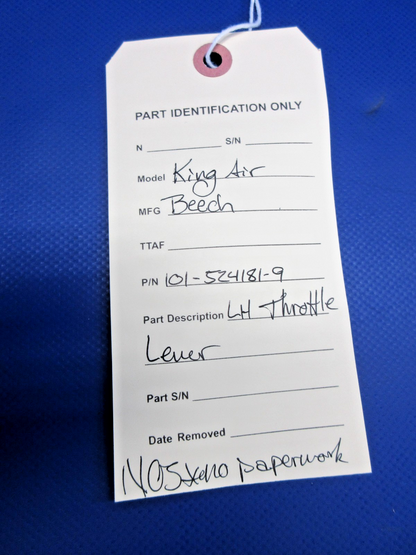 PART IDENTIFICATION ONLY
N ____________ S/N ____________
Model King Air
MFG Beech
TTAF ____________
P/N 101-524181-9
Part Description LH Throttle
Lever
Part S/N ____________
Date Removed ____________
NOS no paperwork